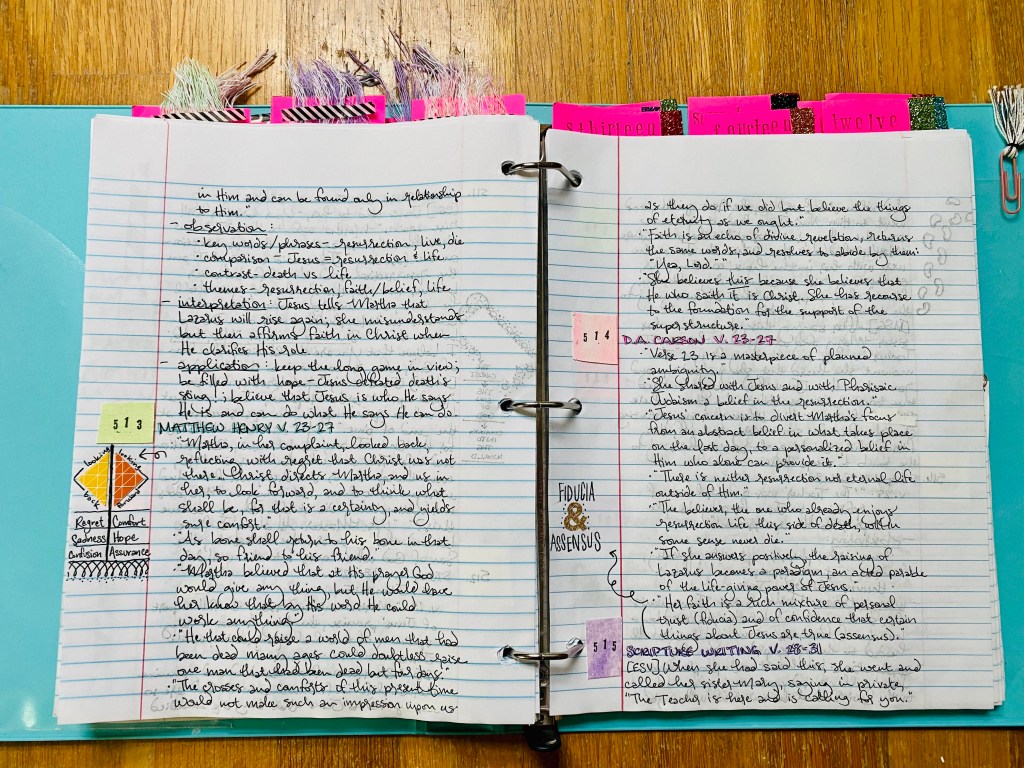 sthirteen
fourteen
twelve
in Him and can be found only in relationship
to Him."
- observation:
• key words/phrases - resurrection, live, die
• comparison - Jesus = resurrection & life
• contrast - death vs life
• themes - resurrection, faith/belief, life
- interpretation: Jesus tells Martha that
Lazarus will rise again; she misunderstands
but then affirms faith in Christ when
He clarifies His role
- application: keep the long game in view;
be filled with hope - Jesus defeated death's
song!; believe that Jesus is who He says
He is and can do what He says He can do.
513
MATTHEW HENRY V. 23-27
• "Martha, in her complaint, looked back,
reflecting with regret that Christ was not
there. Christ directs Martha, and us in
her, to look forward, and to think what
shall be, for that is a certainty, and yields
sure comfort."
• "As bone shall return to his bone in that
day, so friend to his friend."
• "Martha believed that at His prayer God
would give any thing, but He would have
her know that by His word He could
work anything"
• "He that could raise a world of men that had
been dead many ages could doubtless raise
one man that had been dead but four days."
• "The crosses and comforts of this present time
would not make such an impression upon us
looking back
looking forward
Regret Comfort
Sadness Hope
Confusion Assurance
as they do if we did but believe the things
of eternity as we ought."
• "Faith is an echo of divine revelation, returns
the same words, and resolves to abide by them:
'Yea, Lord.'"
• "She believes this because she believes that
He who saith it is Christ. She has recourse
to the foundation for the support of the
superstructure."
514
D.A. CARSON V. 23-27
• "Verse 23 is a masterpiece of planned
ambiguity."
• "She shared with Jesus and with Pharisaic
Judaism a belief in the resurrection."
• "Jesus' concern is to divert Martha's focus
from an abstract belief in what takes place
on the last day, to a personalized belief in
Him who alone can provide it."
• "There is neither resurrection nor eternal life
outside of Him."
• "The believer, the one who already enjoys
resurrection life this side of death, will in
some sense never die."
• "If she answers positively, the raising of
Lazarus becomes a paradigm, an acted parable
of the life-giving power of Jesus.
• "Her faith is a rich mixture of personal
trust (fiducia) and of confidence that certain
things about Jesus are true (assensus)."
FIDUCIA
&
ASSENSUS
515
SCRIPTURE WRITING V. 28-31
[ESV] When she had said this, she went and
called her sister Mary, saying in private,
"The Teacher is here and is calling for you."